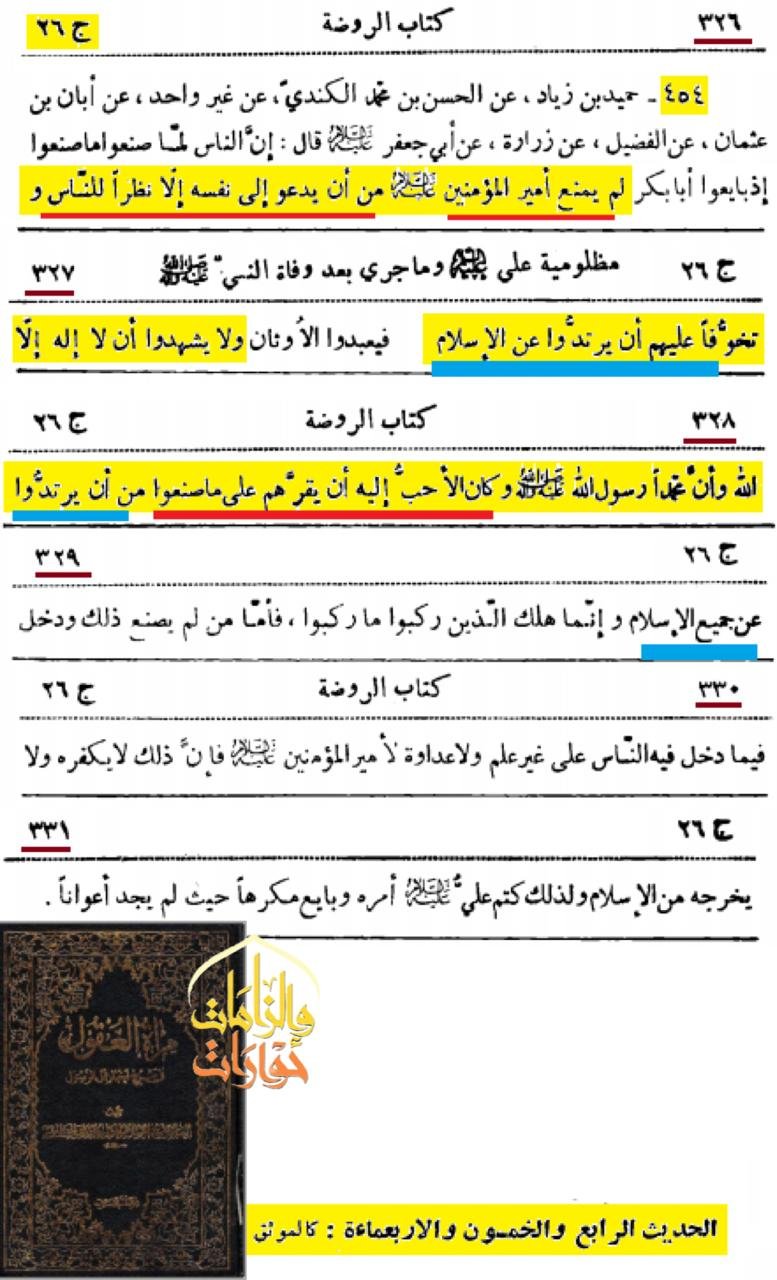 ٣٢٦ كتاب الروضة ج ٢٦
٤٥٤ ـ حميد بن زياد ، عن الحسن بن محمّد الكنديّ ، عن غير واحد ، عن أبان بن
عثمان ، عن الفضيل ، عن زرارة ، عن أبي جعفر عليه السلام قال : إنّ الناس لمّا صنعوا ما صنعوا
إذ بايعوا أبا بكر لم يمنع أمير المؤمنين عليه السلام من أن يدعو إلى نفسه إلّا نظراً للنّاس و
ج ٢٦ مظلومية علي عليه السلام وما جرى بعد وفاة النبيّ صلى الله عليه وآله ٣٢٧
تخوّفاً عليهم أن يرتدّوا عن الإسلام فيعبدوا الأوثان ولا يشهدوا أن لا إله إلّا
٣٢٨ كتاب الروضة ج ٢٦
الله وأنّ محمّداً رسول الله صلى الله عليه وآله وكان الأحبّ إليه أن يقرّهم على ما صنعوا من أن يرتدّوا
ج ٢٦ ٣٢٩
عن جميع الإسلام و إنّما هلك الّذين ركبوا ما ركبوا ، فأمّا من لم يصنع ذلك ودخل
٣٣٠ كتاب الروضة ج ٢٦
فيما دخل فيه النّاس على غير علم ولا عداوة لأمير المؤمنين عليه السلام فإنّ ذلك لا يكفره ولا
ج ٢٦ ٣٣١
يخرجه من الإسلام ولذلك كتم عليّ عليه السلام أمره وبايع مكرهاً حيث لم يجد أعواناً .
والزامات
حوارات
مرآة العقول
الحديث الرابع والخمسون والاربعماءة : كالموثق